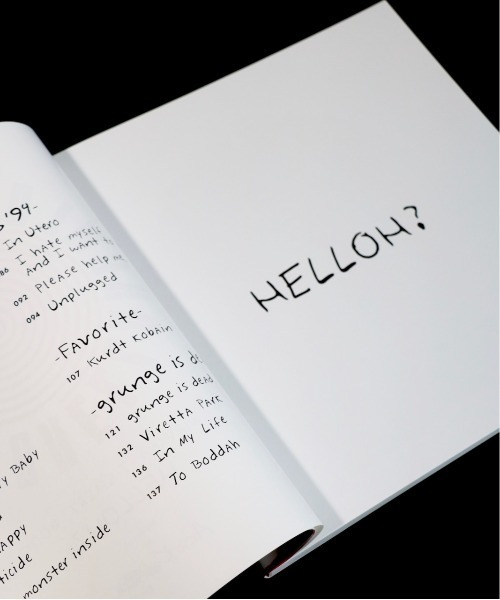 '94-
In Utero
I hate myself
And I want to
092 Please help me
094 Unplugged
-Favorite-
107 Kurdt Kobain
-grunge is d
121 grunge is dead
132 Viretta Park
136 In My Life
137 To Boddah
Y BABY
APPY
ticide
monster inside
HELLOH?